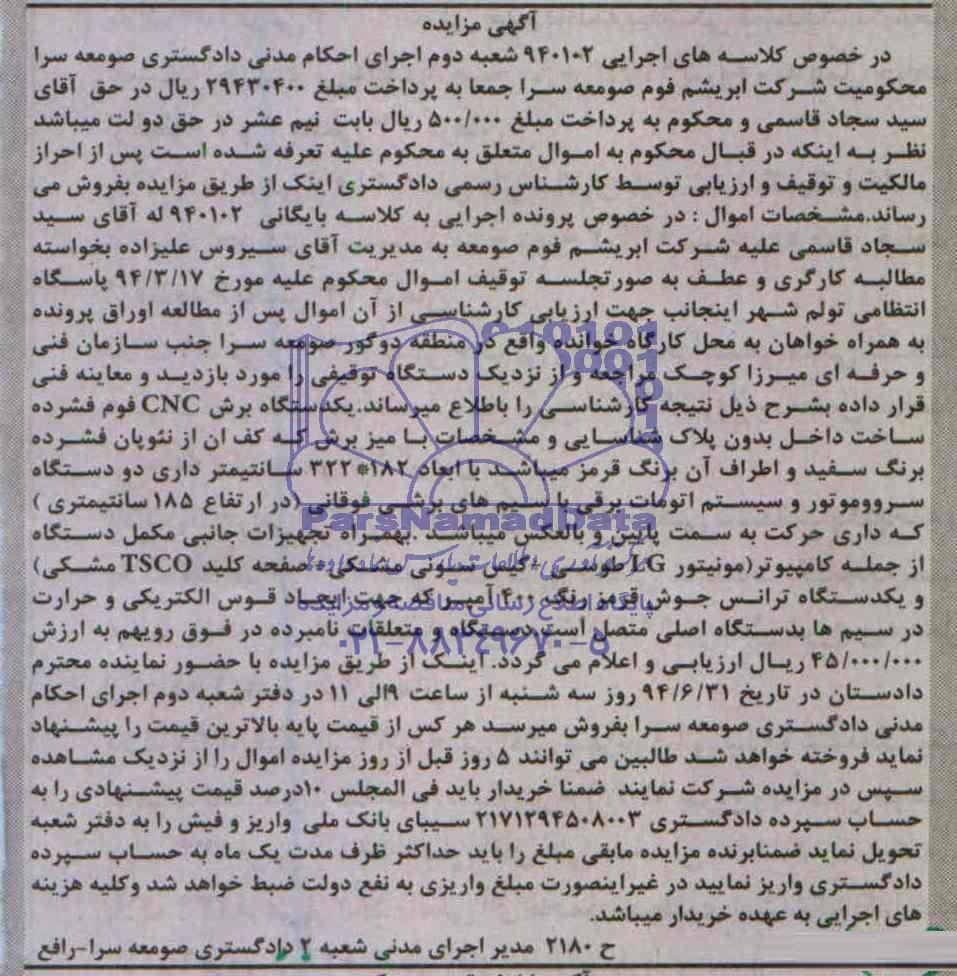 آگهی مزایده
در خصوص کلاسه های اجرایی ۹۴۰۱۰۲ شعبه دوم اجرای احکام مدنی دادگستری صومعه سرا
محکومیت شرکت ابریشم فوم صومعه سرا جمعا به پرداخت مبلغ ۲۹۴۳۰۴۰۰ ریال در حق آقای
سید سجاد قاسمی و محکوم به پرداخت مبلغ ۵۰۰/۰۰۰ ریال بابت نیم عشر در حق دو لت میباشد
نظر به اینکه در قبال محکوم به اموال متعلق به محکوم علیه تعرفه شده است پس از احراز
مالکیت و توقیف و ارزیابی توسط کارشناس رسمی دادگستری اینک از طریق مزایده بفروش می
رساند.مشخصات اموال : در خصوص پرونده اجرایی به کلاسه بایگانی ۹۴۰۱۰۲ له آقای سید
سجاد قاسمی علیه شرکت ابریشم فوم صومعه به مدیریت آقای سیروس علیزاده بخواسته
مطالبه کارگری و عطف به صورتجلسه توقیف اموال محکوم علیه مورخ ۹۴/۳/۱۷ پاسگاه
انتظامی تولم شهر اینجانب جهت ارزیابی کارشناسی از آن اموال پس از مطالعه اوراق پرونده
به همراه خواهان به محل کارگاه خوانده واقع در منطقه دوگور صومعه سرا جنب سازمان فنی
و حرفه ای میرزا کوچک مراجعه و از نزدیک دستگاه توقیفی را مورد بازدید و معاینه فنی
قرار داده بشرح ذیل نتیجه کارشناسی را باطلاع میرساند.یکدستگاه برش CNC فوم فشرده
ساخت داخل بدون پلاک شناسایی و مشخصات با میز برش که کف ان از نئوپان فشرده
برنگ سفید و اطراف آن برنگ قرمز میباشد با ابعاد ۱۸۲*۳۲۲ سانتیمتر داری دو دستگاه
سروموتور و سیستم اتومات برقی با سیم های برشی فوقانی (در ارتفاع ۱۸۵ سانتیمتری )
که داری حرکت به سمت پایین و بالعکس میباشد .بهمراه تجهیزات جانبی مکمل دستگاه
از جمله کامپیوتر(مونیتور LG طوسی +کیس ستونی مشکی+صفحه کلید TSCO مشکی)
و یکدستگاه ترانس جوش قرمز رنگ ۴۰۰ آمپر که جهت ایجاد قوس الکتریکی و حرارت
در سیم ها بدستگاه اصلی متصل است دستگاه و متعلقات نامبرده در فوق رویهم به ارزش
۴۵/۰۰۰/۰۰۰ ریال ارزیابی و اعلام می گردد. اینک از طریق مزایده با حضور نماینده محترم
دادستان در تاریخ ۹۴/۶/۳۱ روز سه شنبه از ساعت ۹الی ۱۱ در دفتر شعبه دوم اجرای احکام
مدنی دادگستری صومعه سرا بفروش میرسد هر کس از قیمت پایه بالاترین قیمت را پیشنهاد
نماید فروخته خواهد شد طالبین می توانند ۵ روز قبل از روز مزایده اموال را از نزدیک مشاهده
سپس در مزایده شرکت نمایند ضمنا خریدار باید فی المجلس ۱۰درصد قیمت پیشنهادی را به
حساب سپرده دادگستری ۲۱۷۱۲۹۴۵۰۸۰۰۳ سیبای بانک ملی واریز و فیش را به دفتر شعبه
تحویل نماید ضمنابرنده مزایده مابقی مبلغ را باید حداکثر ظرف مدت یک ماه به حساب سپرده
دادگستری واریز نمایید در غیراینصورت مبلغ واریزی به نفع دولت ضبط خواهد شد وکلیه هزینه
های اجرایی به عهده خریدار میباشد.
ح ۲۱۸۰ مدیر اجرای مدنی شعبه ۲ دادگستری صومعه سرا-رافع
ParsNamadData
پایگاه اطلاع رسانی مناقصه و مزایده
۰۲۱-۸۸۳۴۹۶۷۰-۵